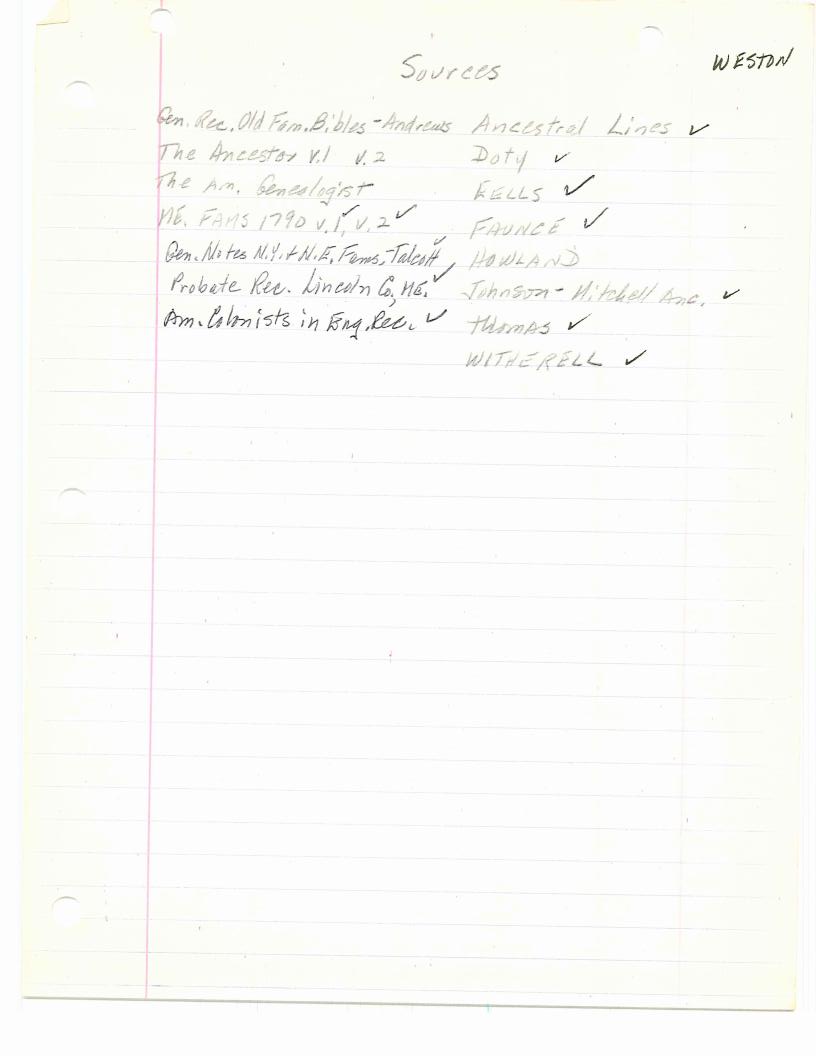 Sources
WESTON
Gen. Rec. Old Fam. Bibles - Andrews
The Ancestor v.1 v.2
The Am. Genealogist
ME. FAMS 1790 v.1✓, v.2 ✓
Gen. Notes N.Y. + N.E. Fams, - Talcott ✓
Probate Rec. Lincoln Co, ME. ✓
Am. Colonists in Eng. Rec. ✓
Ancestral Lines ✓
Doty ✓
EELLS ✓
FAUNCE ✓
HOWLAND
Johnson - Mitchell Anc. ✓
THOMAS ✓
WITHERELL ✓